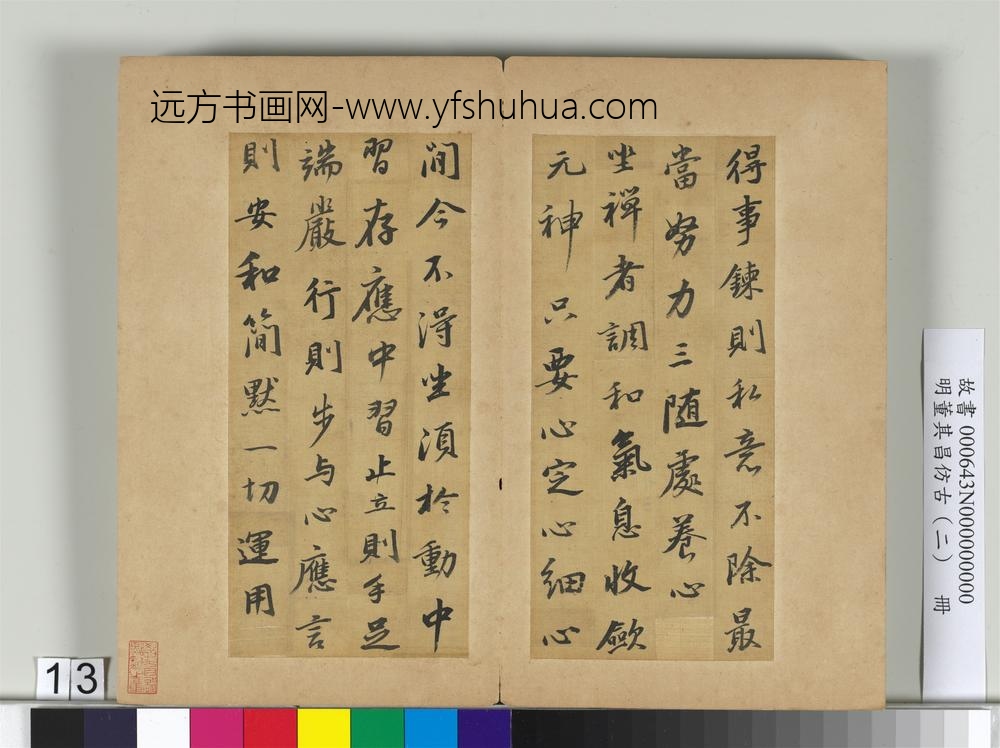 远方书画网-www.yfshuhua.com
得事鍊則私意不除最
當努力三随處養心
坐禪者調和氣息收歛
元神只要心定心細心
閒今不得坐須於動中
習存應中習止立則手足
端嚴行則步与心應言
則安和簡默一切運用
故書 000643N000000000
明董其昌仿古（二） 冊
13